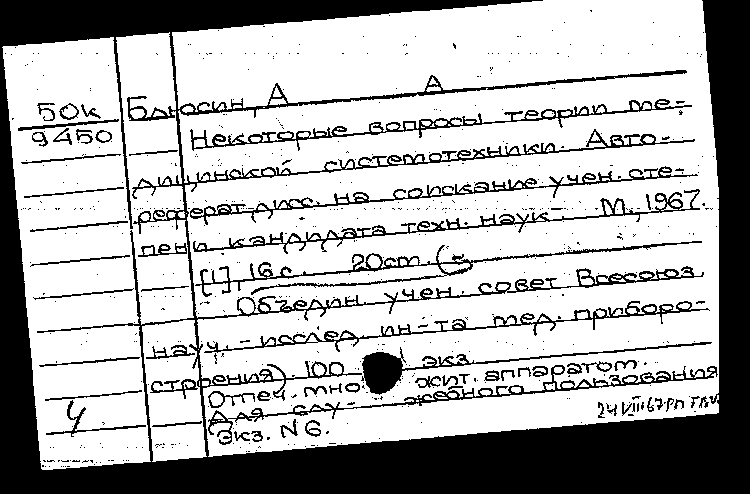 50к Блюсин, А А
9450 Некоторые вопросы теории ме-
дицинской системотехники. Авто-
реферат дисс. на соискание учен. сте-
пени кандидата техн. наук. М., 1967.
[1], 16 с. 20 cm. (
Объедин. учен. совет Всесоюз.
науч.-исслед. ин-та мед. приборо-
строения) 100 экз.
Отпеч. мно жит. аппаратом.
Для слу- жебного пользования
Экз. N 6.
4
24 VIII 67